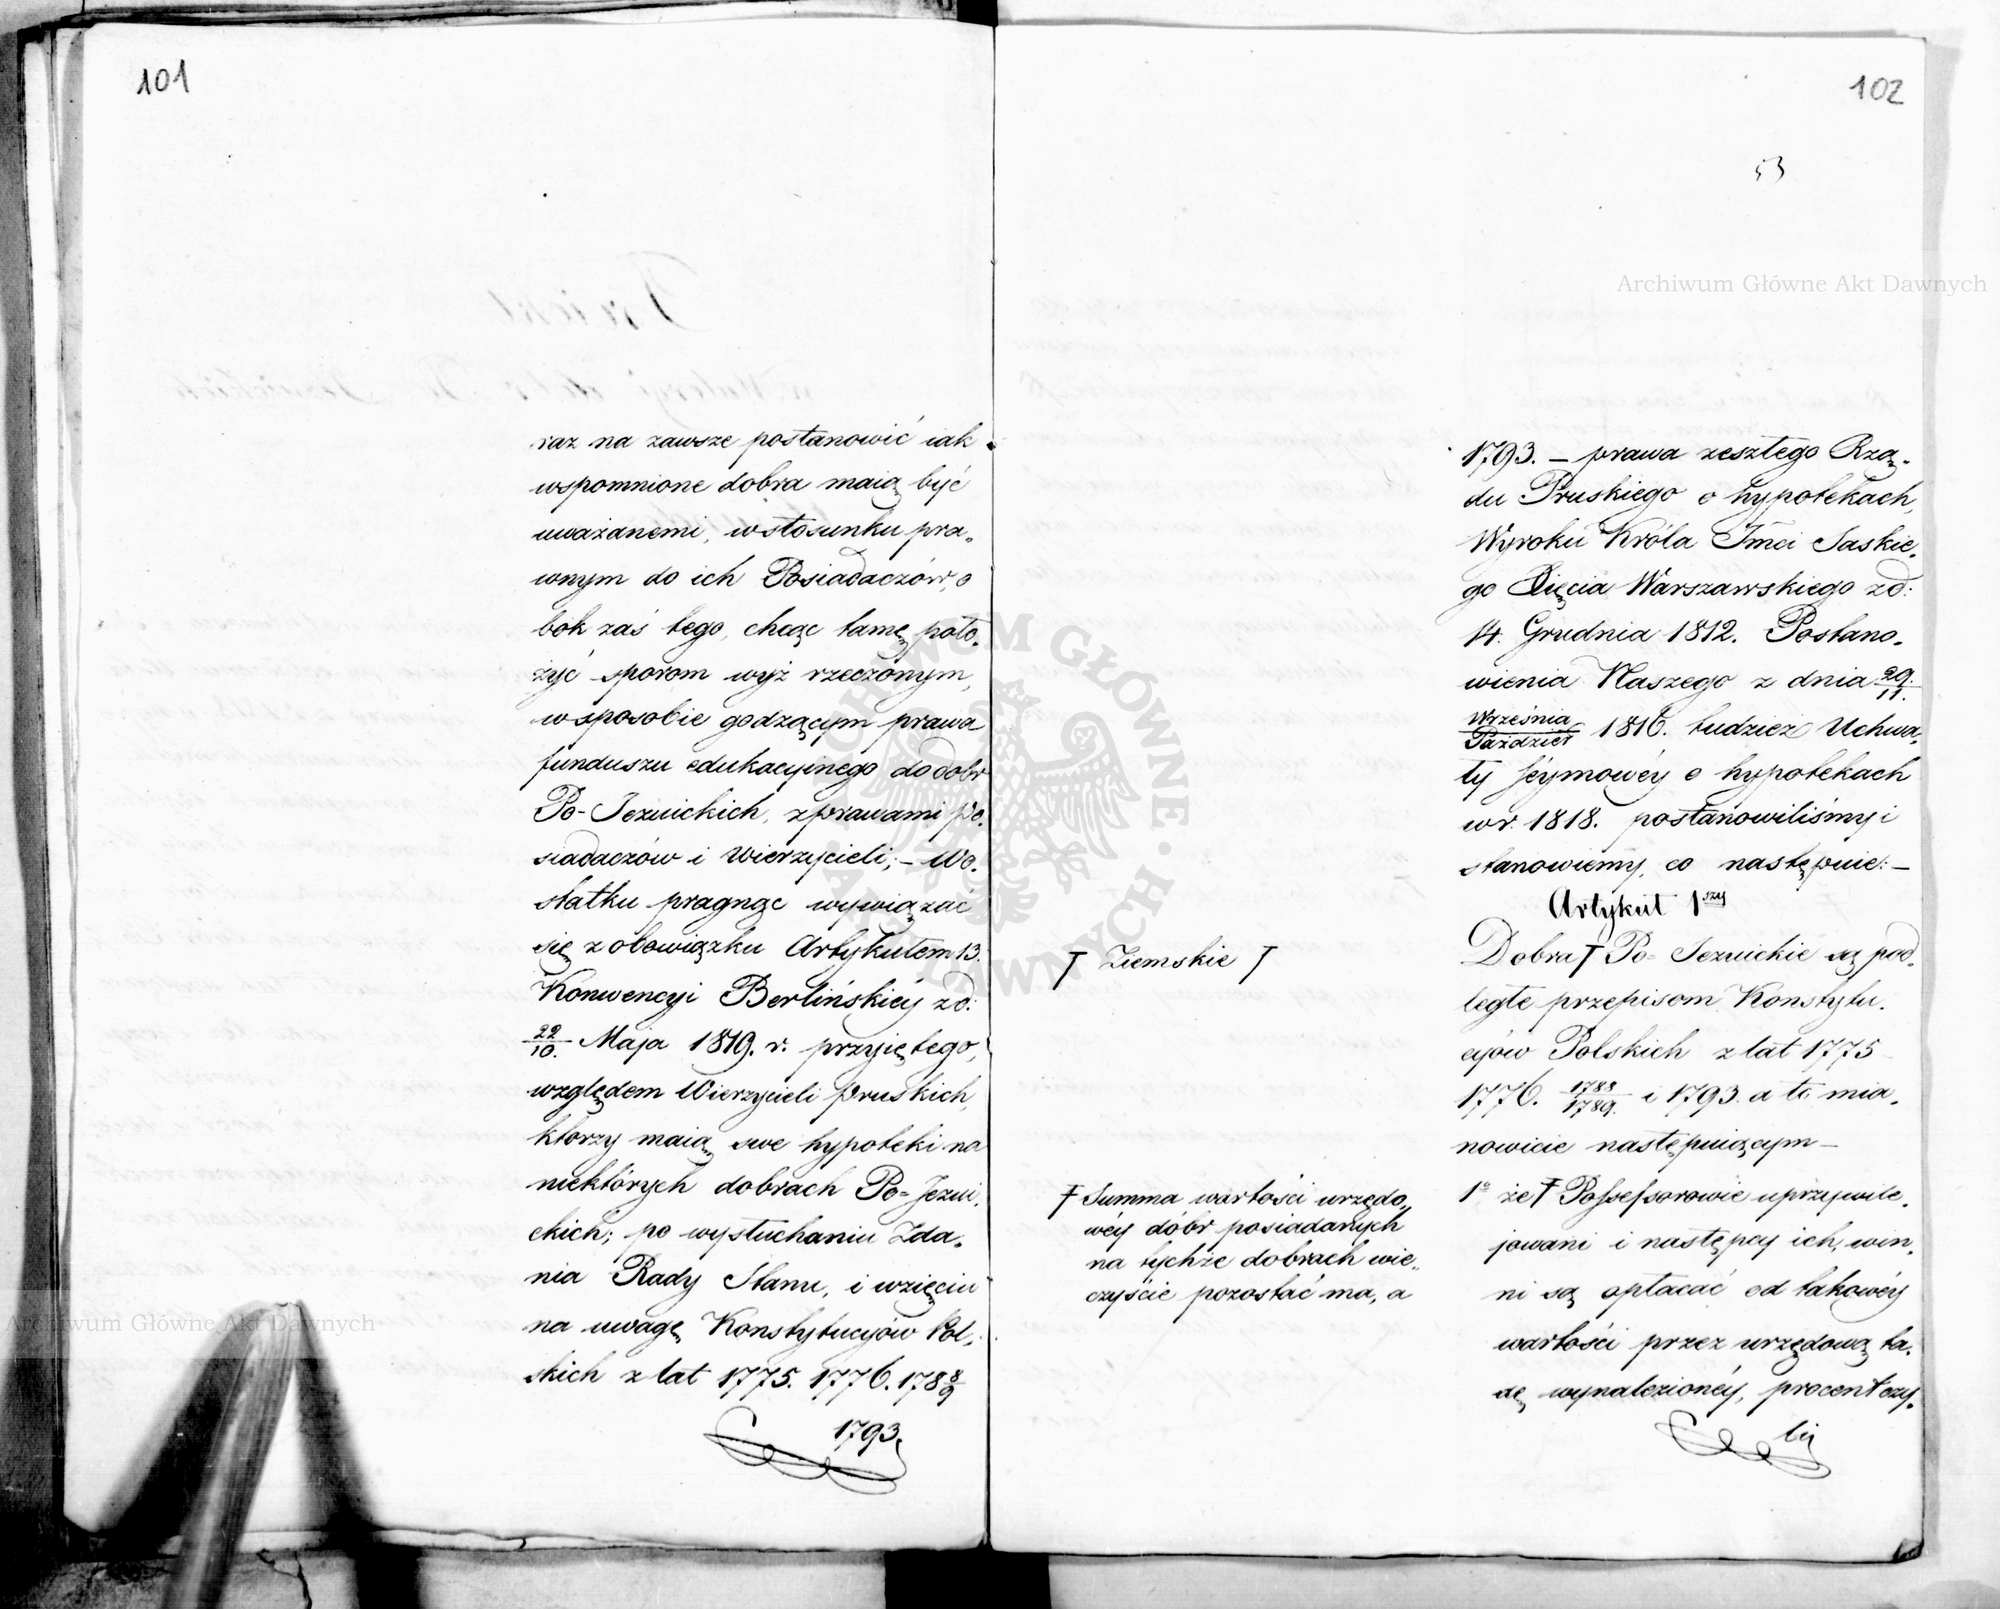 101
raz na zawsze postanowić iak
wspomnione dobra maią być
uważanemi, w stosunku pra„
wnym do ich Posiadaczów, o
bok zaś tego, chcąc tamę poło„
żyć sporom wyż rzeczonym,
w sposobie godzącym prawa
funduszu edukacyinego do dobr
Po-Jezuickich, z prawami po„
siadaczów i Wierzycieli; – Wo„
statku pragnąc wywiązać
się z obowiązku Artykułem 13.
Konwencyi Berlińskiéy z d:
22/10. Maja 1819. r. przyiętego,
względem Wierzycieli Pruskich,
ktorzy maią swe hypoteki na
niektórych dobrach Po-Jezui„
ckich; po wysłuchaniu Zda„
nia Rady Stanu, i wzięciu
na uwagę Konstytucyów Pol„
skich z lat 1775. 1776. 178 8/9
1793.
102
53
1793. – prawa zeszłego Rzą„
du Pruskiego o hypotekach,
Wyroku Króla Jmci Saskie„
go Xięcia Warszawskiego z d:
14. Grudnia 1812. Postano„
wienia Naszego z dnia 29./11.
Września/Paździer 1816. tudzież Uchwa„
ły Seymowéy o hypotekach
w r. 1818. postanowiliśmy i
stanowiemy, co następuie: –
Artykuł 1szy
Dobra † Po-Jezuickie są pod„
ległe przepisom Konstytu„
cyów Polskich z lat 1775
1776. 1788/1789. i 1793. a to mia„
nowicie następuiącym –
1° że † Possessorowie uprzywile„
jowani i następcy ich, win„
ni są opłacać od takowéy
wartości przez urzędową ta„
xę wynalezionéy, procent czy„
li
† Ziemskie †
† Summa wartości urzędo„
wéy dóbr posiadanych
na tychże dobrach wie„
czyście pozostać ma, a
Archiwum Główne Akt Dawnych
Archiwum Główne Akt Dawnych
ARCHIWUM GŁÓWNE · AKT DAWNYCH ·